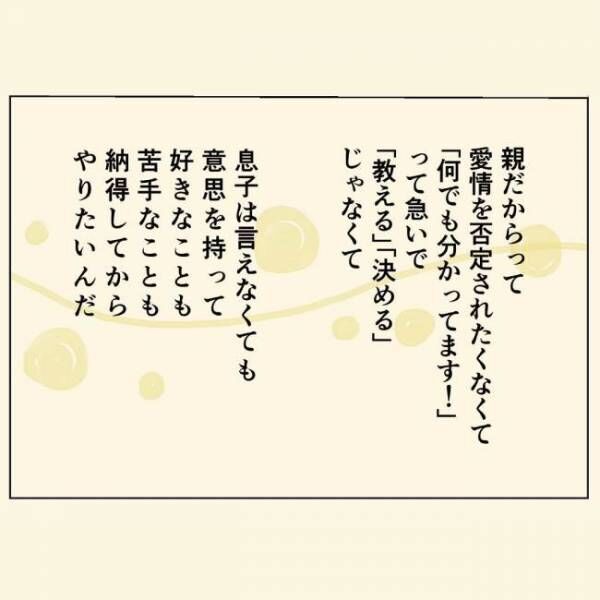 親だからって
愛情を否定されたくなくて
「何でも分かってます！」
って急いで
「教える」「決める」
じゃなくて
息子は言えなくても
意思を持って
好きなことも
苦手なことも
納得してから
やりたいんだ